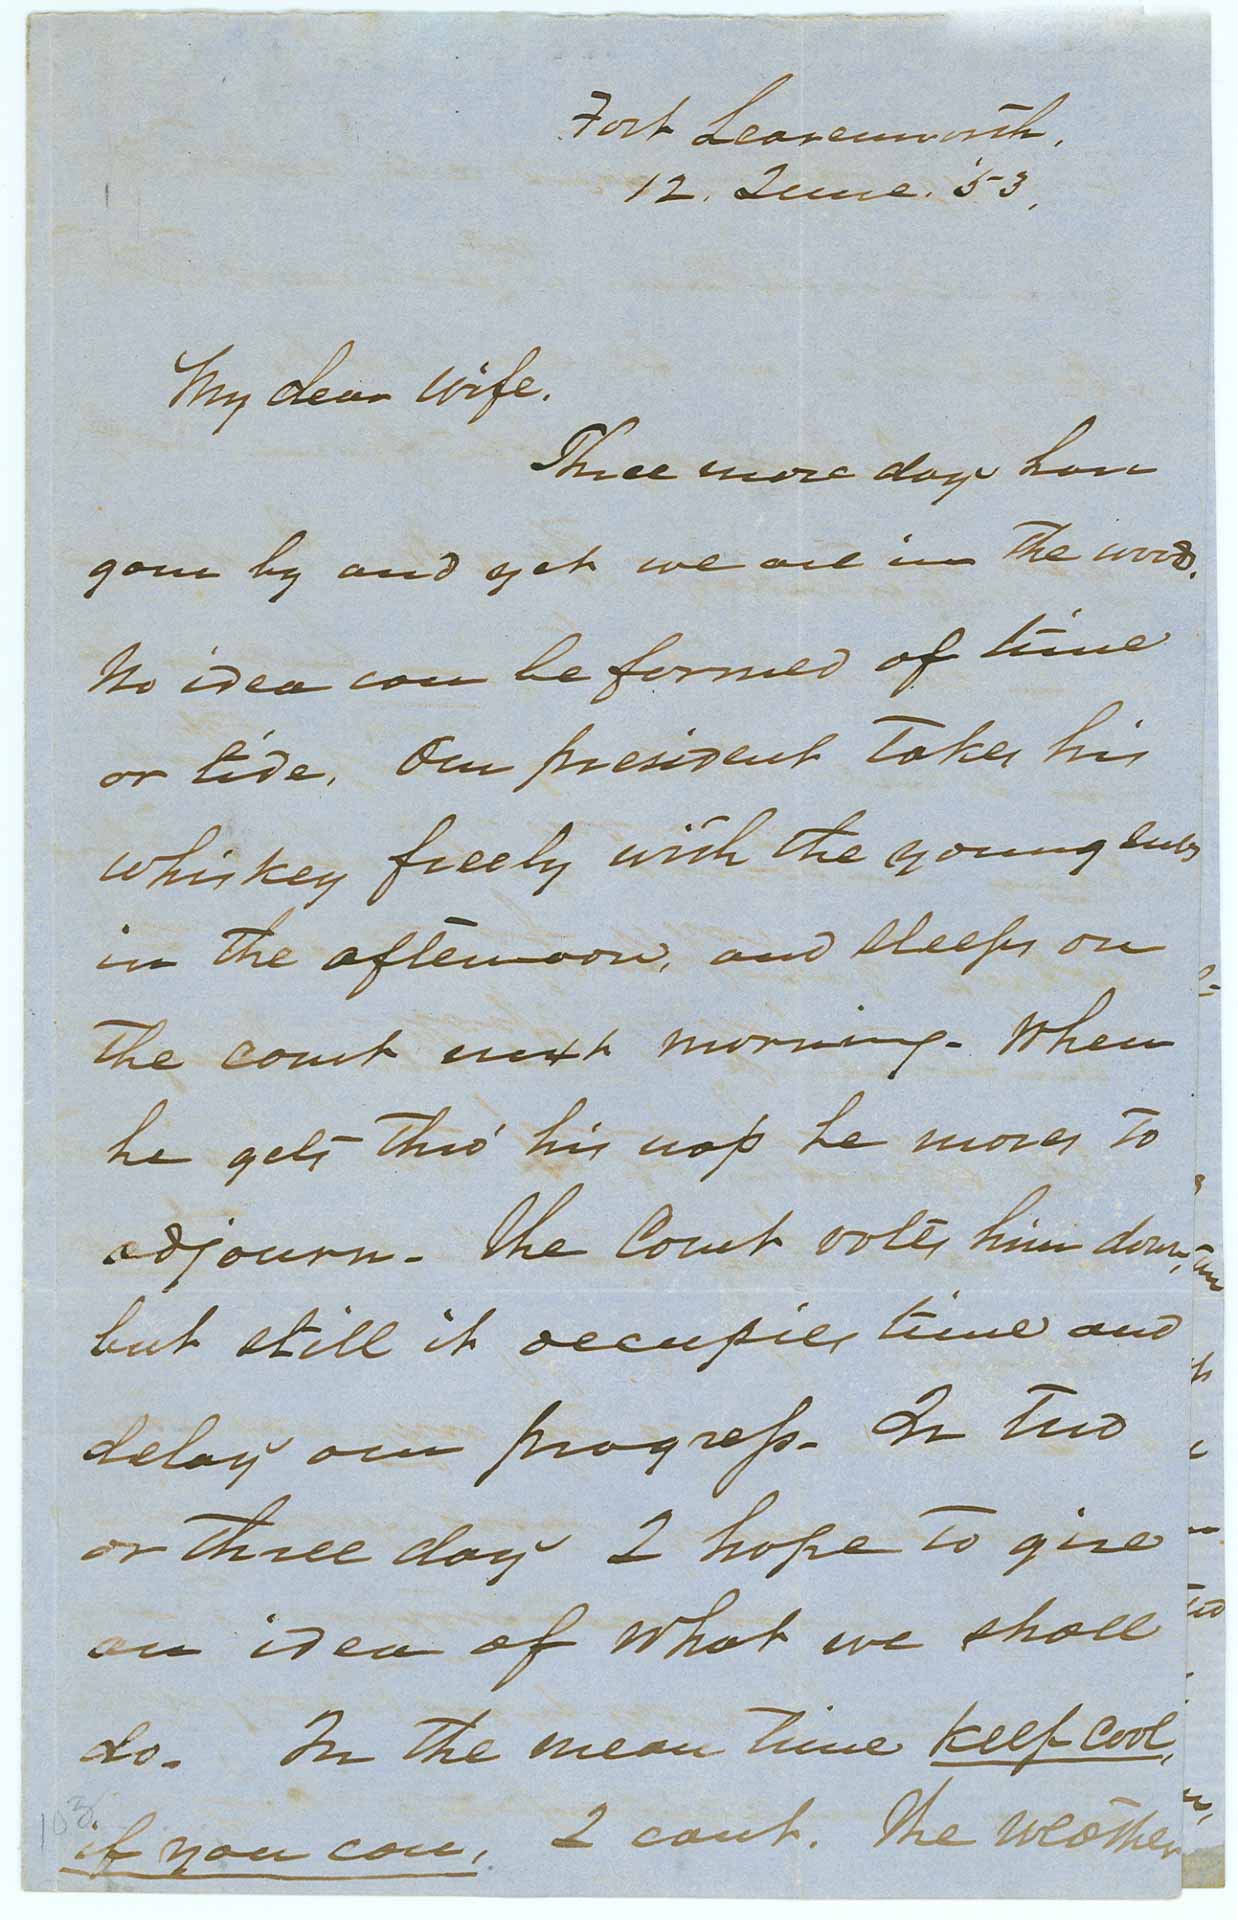 Fort Leavenworth,
12. June. '53.
My dear Wife.
Three more days have
gone by and yet we are in the woods.
No idea can be formed of time
or tide. Our president takes his
whiskey freely with the young subs
in the afternoon, and sleeps on
the court next morning. When
he gets thro' his nap he moves to
adjourn. The Court votes him down,
but still it occupies time and
delays our progress. In two
or three days I hope to give
an idea of what we shall
do. In the mean time keep cool,
if you can, I cant. The weather
103